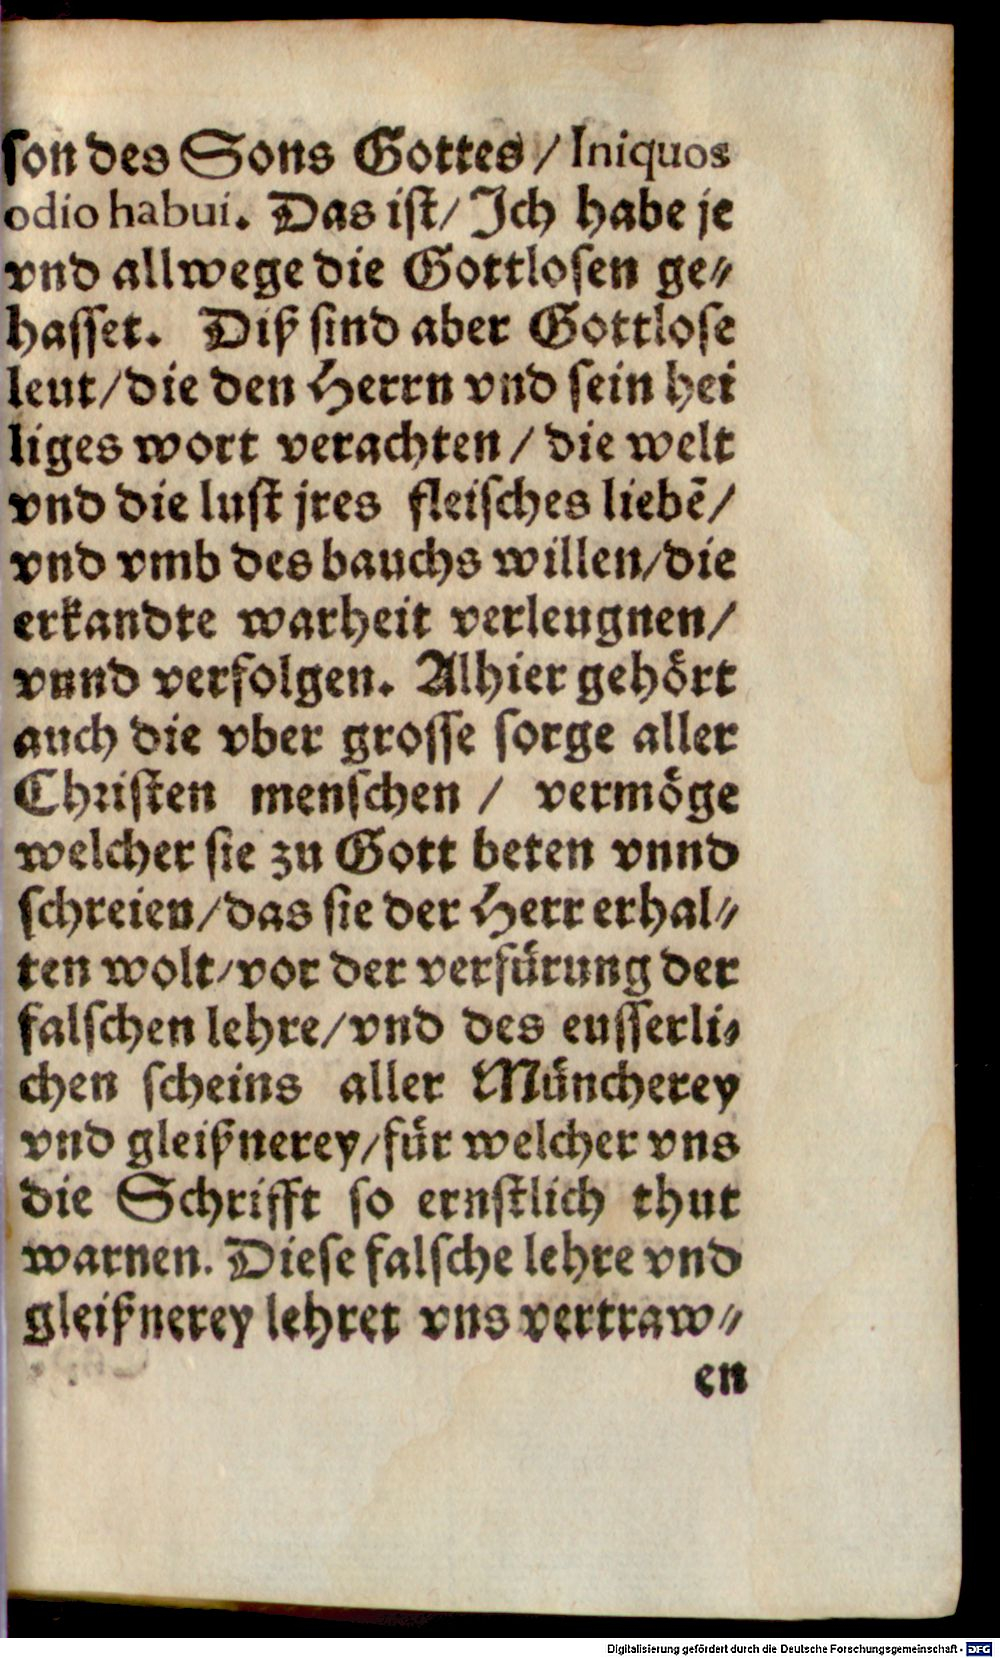 son des Sons Gottes / Iniquos
odio habui. Das ist / Ich habe je
vnd allwege die Gottlosen ge⸗
hasset. Diß sind aber Gottlose
leut / die den Herrn vnd sein hei
liges wort verachten / die welt
vnd die lust jres fleisches liebẽ /
vnd vmb des bauchs willen / die
erkandte warheit verleugnen /
vnnd verfolgen. Alhier gehört
auch die vber grosse sorge aller
Christen menschen / vermöge
welcher sie zu Gott beten vnnd
schreien / das sie der Herr erhal⸗
ten wolt / vor der verfürung der
falschen lehre / vnd des eusserli⸗
chen scheins aller Müncherey
vnd gleißnerey / für welcher vns
die Schrifft so ernstlich thut
warnen. Diese falsche lehre vnd
gleißnerey lehret vns vertraw⸗
en
Digitalisierung gefördert durch die Deutsche Forschungsgemeinschaft - DFG